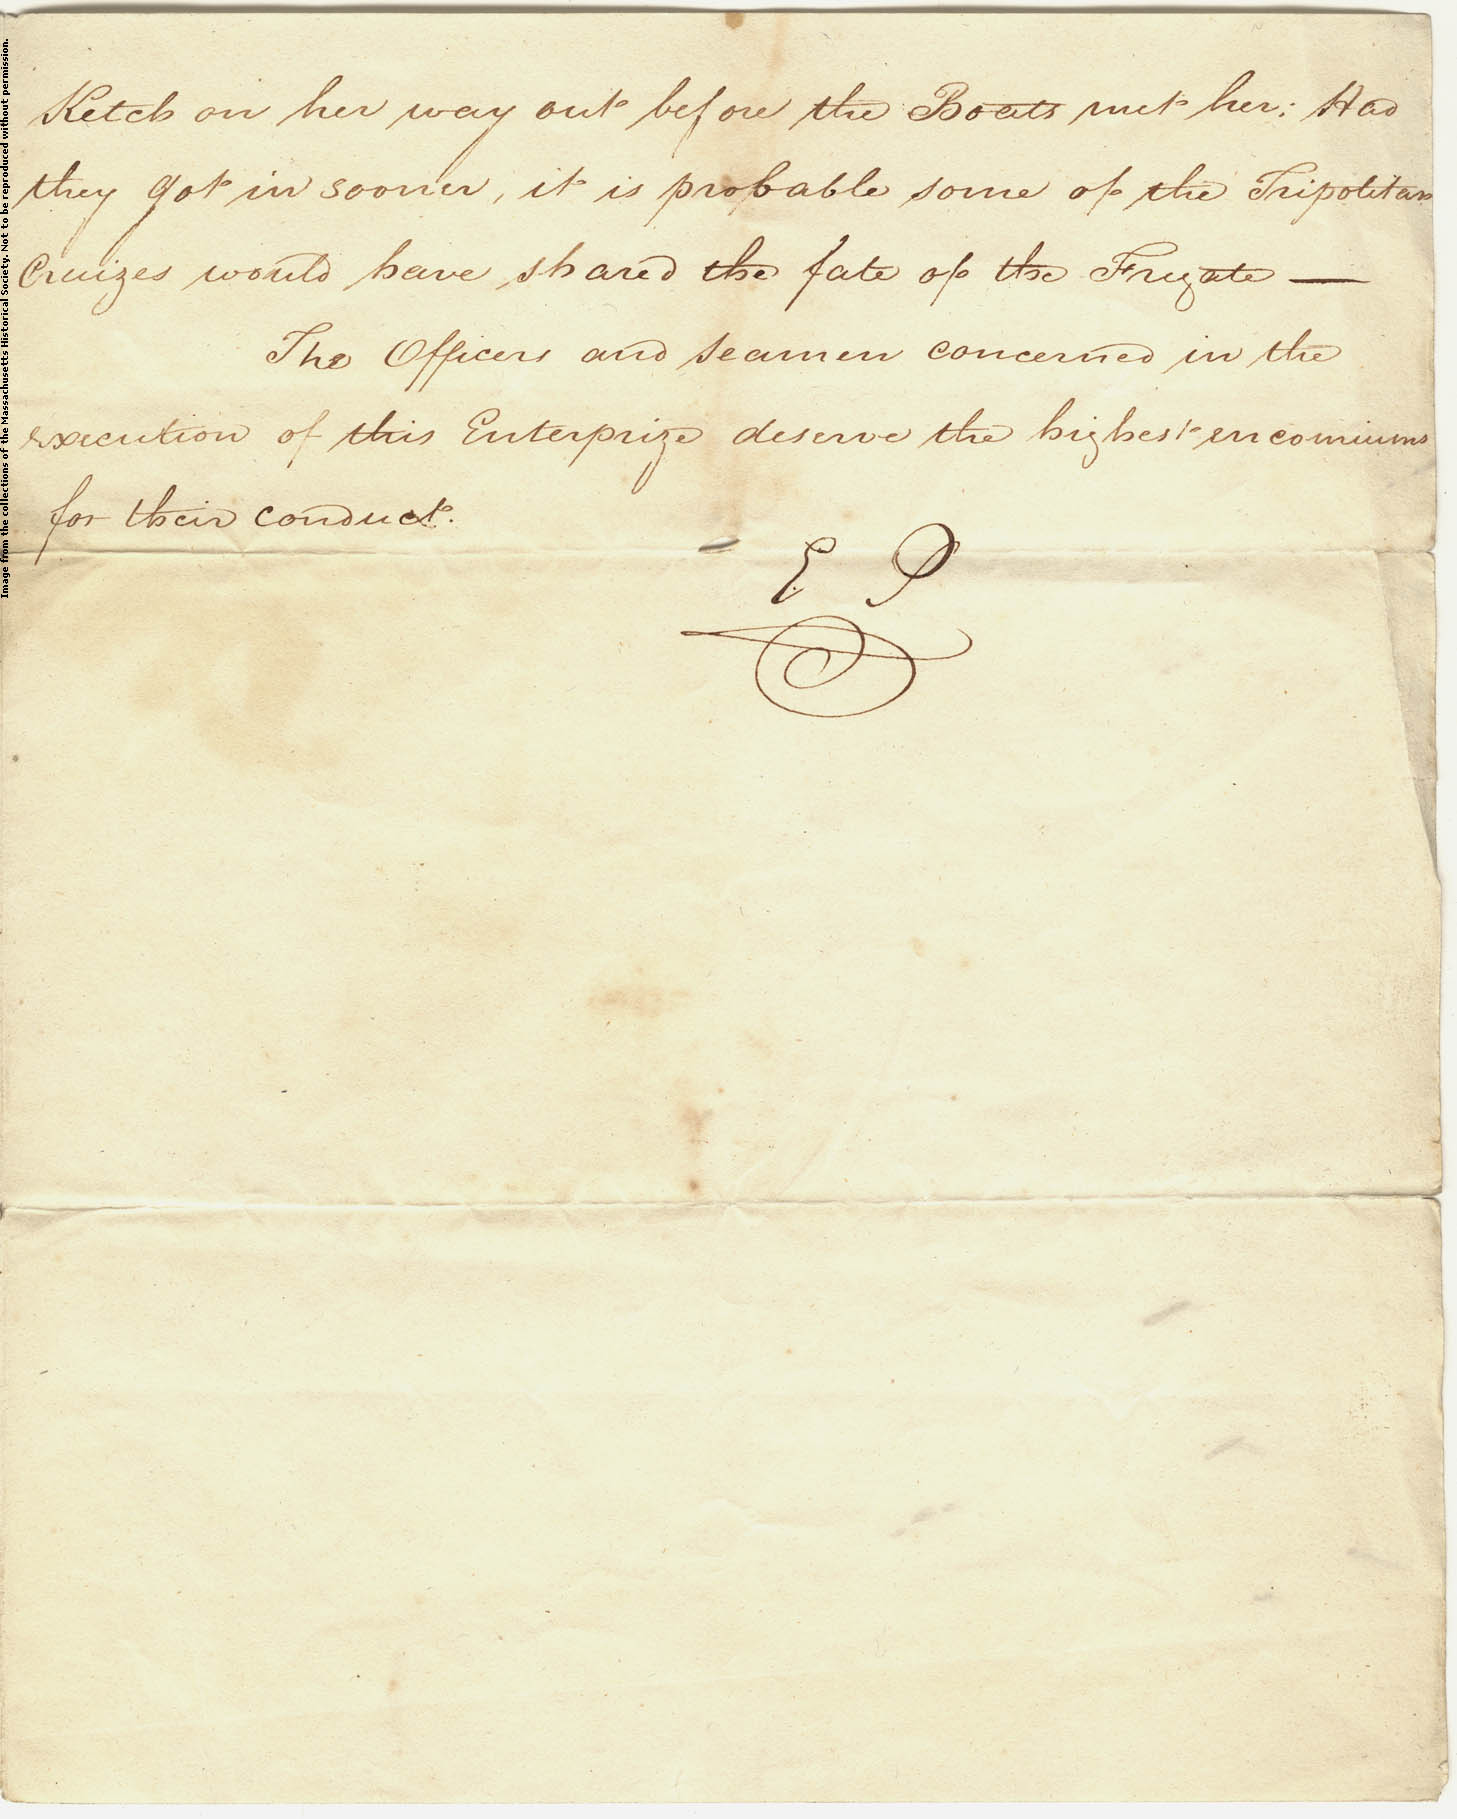 Ketch on her way out before the Boats met her: Had
they got in sooner, it is probable some of the Tripolitan
Cruizes would have shared the fate of the Frigate —
The Officers and seamen concerned in the
execution of this Enterprize deserve the highest encomiums
for their conduct.
E P
Image from the collections of the Massachusetts Historical Society. Not to be reproduced without permission.